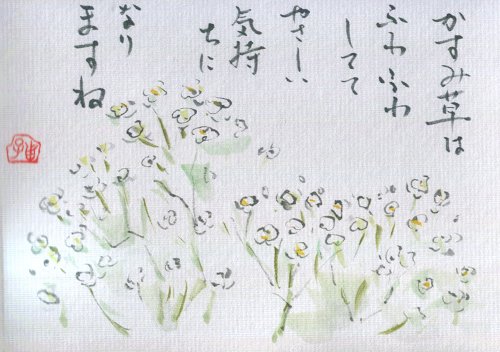 かすみ草は
ふわふわ
してて
やさしい
気持
ちに
なり
ますね